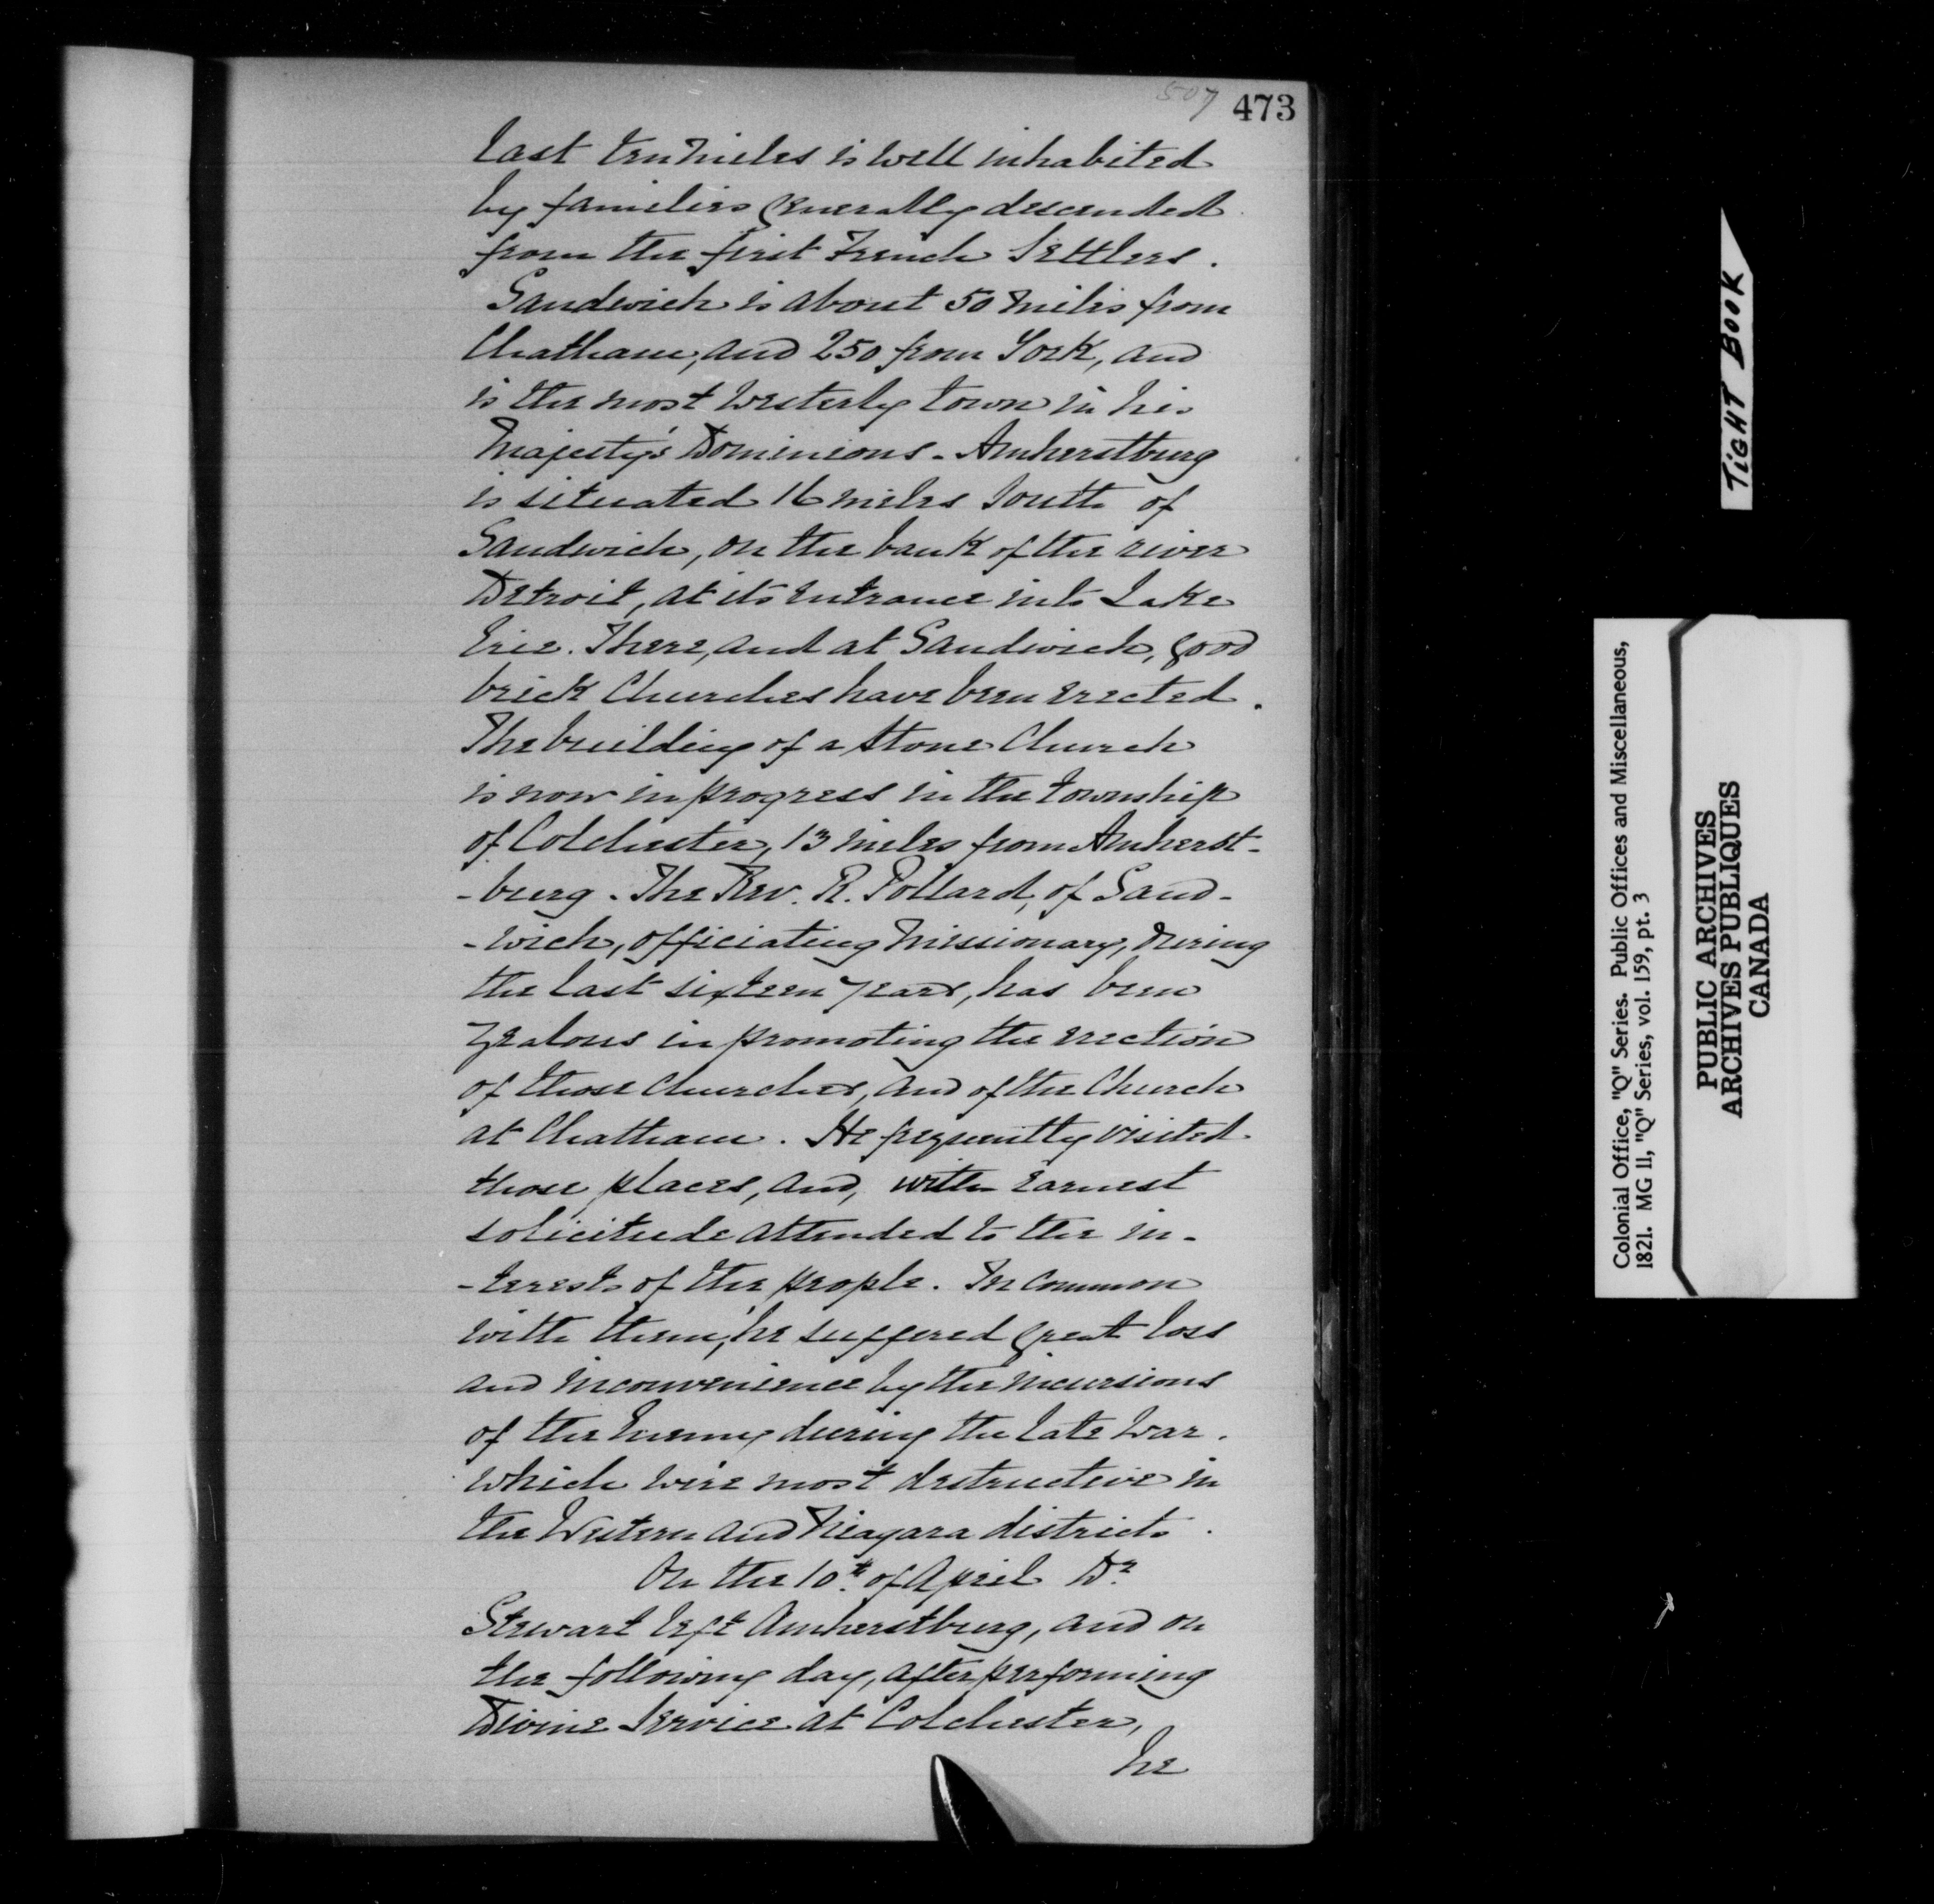 507 473
last ten miles is well inhabited
by families generally descended
from the first French Settlers.
Sandwich is about 50 miles from
Chatham, and 250 from York, and
is the most westerly town in his
Majesty's Dominions - Amherstburg
is situated 16 miles South of
Sandwich, on the bank of the river
Detroit, at its entrance into Lake
Erie. There, and at Sandwich, good
brick Churches have been erected.
The building of a Stone Church
is now in progress in the township
of Colchester, 13 miles from Amherst-
-burg. The Rev. R. Pollard, of Sand-
-wich, officiating Missionary, during
the last sixteen years, has been
zealous in promoting the erection
of those Churches, and of the Church
at Chatham. He frequently visited
those places, and, with earnest
solicitude attended to the in-
-terests of the people. In common
with them, he suffered great loss
and inconvenience by the incursions
of the Enemy during the late War.
which were most destructive in
the Western and Niagara districts.
On the 10th. of April Dr.
Stewart left Amherstburg, and on
the following day, after performing
Divine Service at Colchester,
he
TIGHT BOOK
Colonial Office, "Q" Series. Public Offices and Miscellaneous,
1821. MG 11, "Q" Series, vol. 159, pt. 3
PUBLIC ARCHIVES
ARCHIVES PUBLIQUES
CANADA